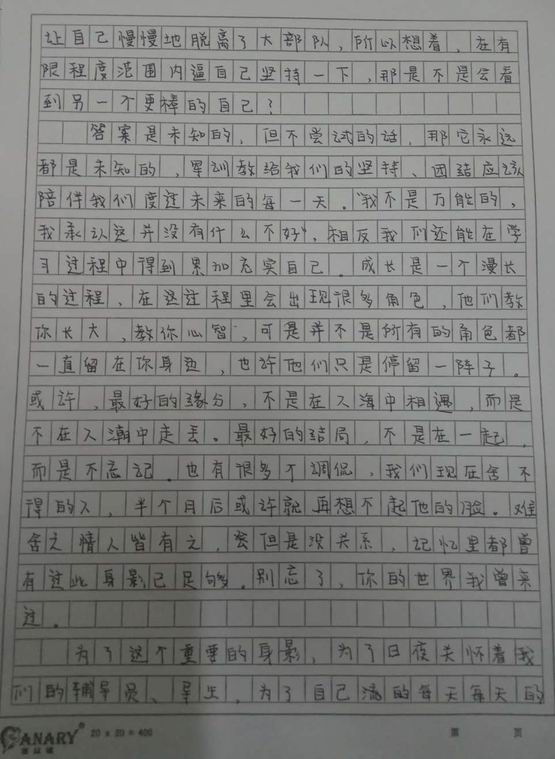 让自己慢慢地脱离了大部队，所以想着，在有
限程度范围内逼自己坚持一下，那是不是会看
到另一个更棒的自己？
答案是未知的，但不尝试的话，那它永远
都是未知的，军训教给我们的坚持、团结应该
陪伴我们度过未来的每一天。“我不是万能的，
我承认这并没有什么不好”，相反我们还能在学
习过程中得到累加充实自己。成长是一个漫长
的过程，在这过程里会出现很多角色，他们教
你长大，教你心智，可是并不是所有的角色都
一直留在你身边，也许他们只是停留一阵子。
或许，最好的缘分，不是在人海中相遇，而是
不在人潮中走丢。最好的结局，不是在一起，
而是不忘记。也有很多个调侃，我们现在舍不
得的人，半个月后或许就再想不起他的脸。难
舍之情人皆有之，但是没关系，记忆里都曾
有过此身影已足够。别忘了，你的世界我曾来
过。
为了这个重要的身影，为了日夜关怀着我
们的辅导员、学生，为了自己流的每天每天的
CANARY®
20 x 20 = 400
第 页